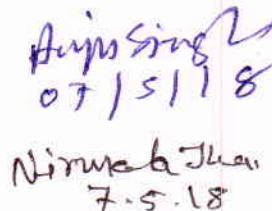 Anju Singh
07/5/18
Nirmala Jha.
7.5.18